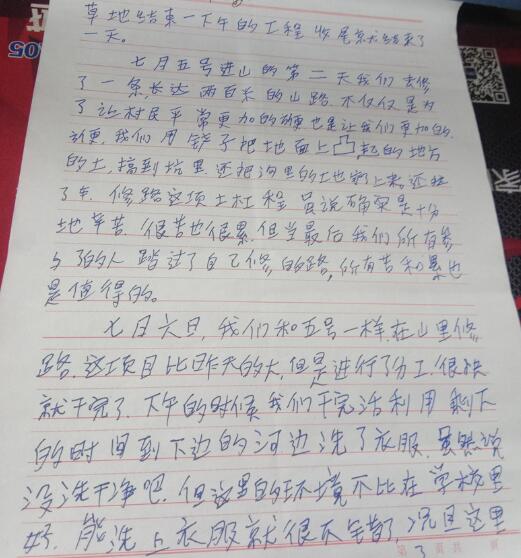 草地结束一下午的工程收尾就结束了
一天。
七月五号进山的第二天我们去修
了一条,长达两百米的山路.不仅仅是为
了让村民平常更加的方便也是让我们更加的.
方便.我们用铲子把地面上凸起的地方
的土,搞到坑里.还把沟里的土也铲上来.还拉
了车.修路这项土杜程虽说确实是十份
地辛苦.很苦也很累.但当最后我们所有参
与了的人踏过了自己修的路,所有苦和累也
是值得的。
七月六日,我们和五号一样.在山里修
路.这项目比昨天的大.但是进行了分工.很快
就干完了.下午的时候我们干完活利用剩下
的时间到下边的河边洗了衣服.虽然说
没洗干净吧.但这里的环境不比在学校里
好.能洗上衣服就很不错了,况且这里
05
家